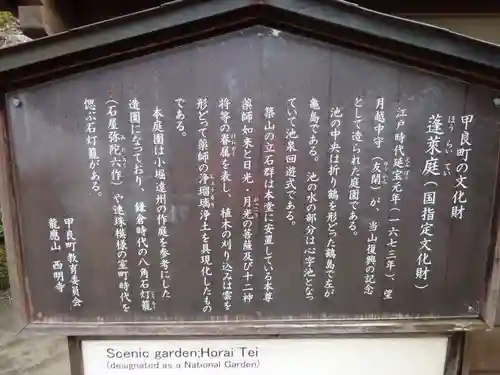 甲良町の文化財
蓬莱庭(国指定文化財)
ほうらいてい
江戸時代延宝元年(一六七三年)望
月越中守(友閑)が、当山復興の記念
として造られた庭園である。
池の中央は折り鶴を形どった鶴島で左が
亀島である。池の水の部分は心字池となっ
ていて池泉回遊式である。
築山の立石群は本堂に安置している本尊
薬師如来と日光・月光の菩薩及び十二神
将等の眷属を表し、植木の刈り込みは雲を
形どって薬師の浄瑠璃浄土を具現化したもの
である。
本庭園は小堀遠州の作庭を参考にした
造園になっており、鎌倉時代の八角石灯籠
(石屋弥陀六作)や連珠模様の室町時代を
偲ぶ石灯籠がある。
甲良町教育委員会
龍應山 西明寺
Scenic garden;Horai Tei
(designated as a National Garden)